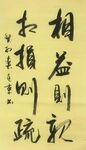 相益則親
相損則疏